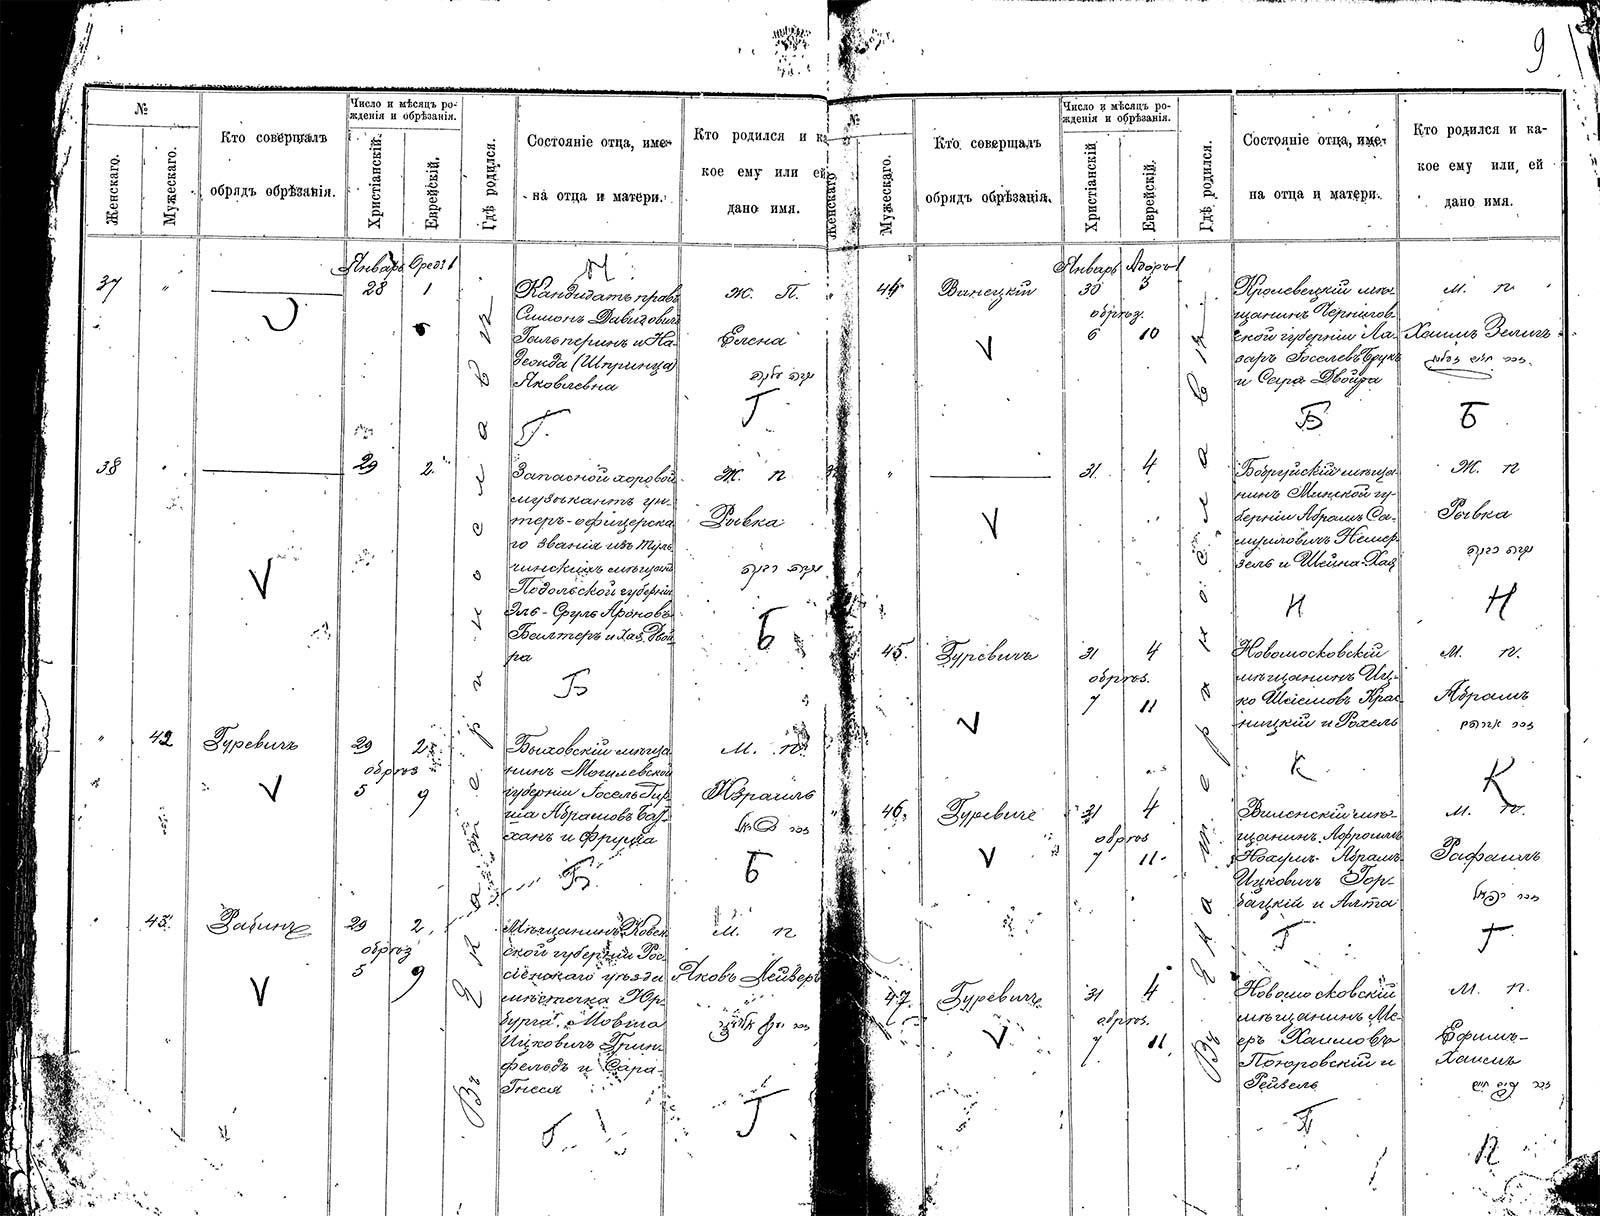 9
№
Женскаго.
Мужескаго.
Кто совершалъ
обрядъ обрѣзанія.
Число и мѣсяцъ ро-
жденія и обрѣзанія.
Христіанскій.
Еврейскій.
Гдѣ родился.
Состояніе отца, име-
на отца и матери.
Кто родился и ка
кое ему или ей
дано имя.
Въ Екатеринославѣ
37
"
Январь
28
1
Кандидатъ правъ
Симонъ Давидовичъ
Гальперинъ и На-
дежда (Шпринца)
Яковлевна
Ж. П.
Елена
Г.
Г
38
"
29
2.
Запасной хоровой
музыкантъ ун-
теръ-офицерска
го званія изъ Туль
чинскихъ мѣщанъ
Подольской губерніи
Эль-Сруль Ароновъ
Балтеръ и Хая Двой
ра
Ж. п
Рывка
Б
Б
"
42
Гуревичъ
29
2
обрѣз
5
9
Быховскій мѣща
нинъ Могилевской
губерніи Іосель Гир
ша Абрамовъ
и Фрума
М. п.
Израиль
Б
Б
43.
Рабинъ
29
2.
обрѣз
5
9
Мѣщанинъ Ковен
ской губерніи Рос-
сіенскаго уѣзда
мѣстечка Юр-
бурга, Мовша
Ицковичъ Грин-
фельдъ и Сара-
Гнеся
М. п
Яковъ Лейзеръ
Г
№
Женскаго
Мужескаго.
Кто совершалъ
обрядъ обрѣзанія.
Число и мѣсяцъ ро-
жденія и обрѣзанія.
Христіанскій
Еврейскій.
Гдѣ родился.
Состояніе отца, име-
на отца и матери.
Кто родился и ка-
кое ему или, ей
дано имя.
Въ Екатеринославѣ
44
Винецкій
Январь
Адоръ 1
30
3
обрѣз.
6
10
Кролевецкій мѣ-
щанинъ Чернигов-
ской губерніи Ла-
заръ Іоселевъ Брукъ
и Сара Двойра
м. п
Хаимъ Зеликъ
Б
Б
"
31.
4
Бобруйскій мѣща-
нинъ Минской гу-
берніи Абрамъ Са-
муиловичъ Немер
зель и Шейна-Хая
Ж. п
Рывка
Н
Н
45.
Гуревичъ
31
4
обрѣз.
7
11
Новомосковскій
мѣщанинъ Иц-
ко Крас
ницкій и Рохель
М. п.
Абрамъ
К
К
46.
Гуревичъ
31
4
обрѣз
7
11.
Виленскій мѣ-
щанинъ Афроимъ
Абрамъ
Ицковичъ Гор-
бацкій и Алта
М. п.
Рафаилъ
Г
Г
47.
Гуревичъ
31
4
обрѣз.
7
11
Новомосковскій
мѣщанинъ Ме-
еръ Хаимовъ
и
Рейзель
М. п.
Ефимъ-
Хаимъ
П
П